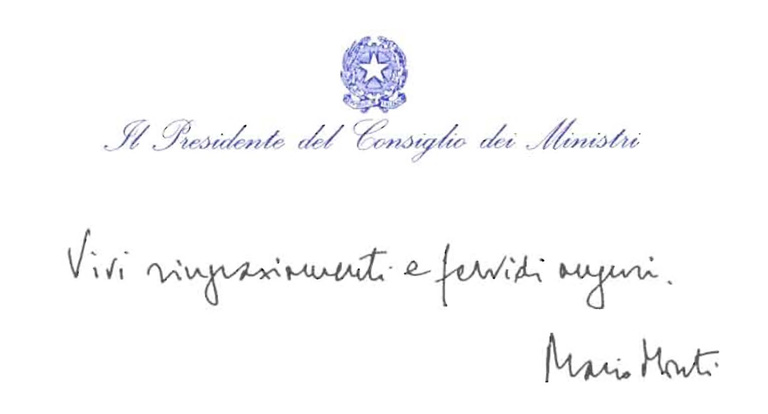 Il Presidente del Consiglio dei Ministri
Vivi ringraziamenti e fervidi auguri.
Mario Monti